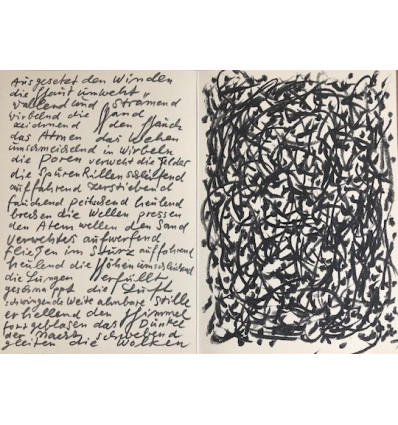 Ausgesetzt den Winden
die Haut umweht
wallend und strömend
wirbelnd die Hand
zeichnend den Hauch
das Atmen das Wehen
umschmeichelnd in Wirbeln
die Poren verweht die Felder
die Spuren
auffahrend zerstiebend
fauchend peitschend heulend
brechen die Wellen pressen
den Atem wellen den Sand
Verwehtes aufwerfend
fließen im Sturz auffahrend
heulend die Höhen
die Lungen erfüllt
geschnappt die Luft
schwingende Weite atmbare Stille
erhellend den Himmel
fortgeblasen das Dunkel
der Nacht schwebend
gleiten die Wolken